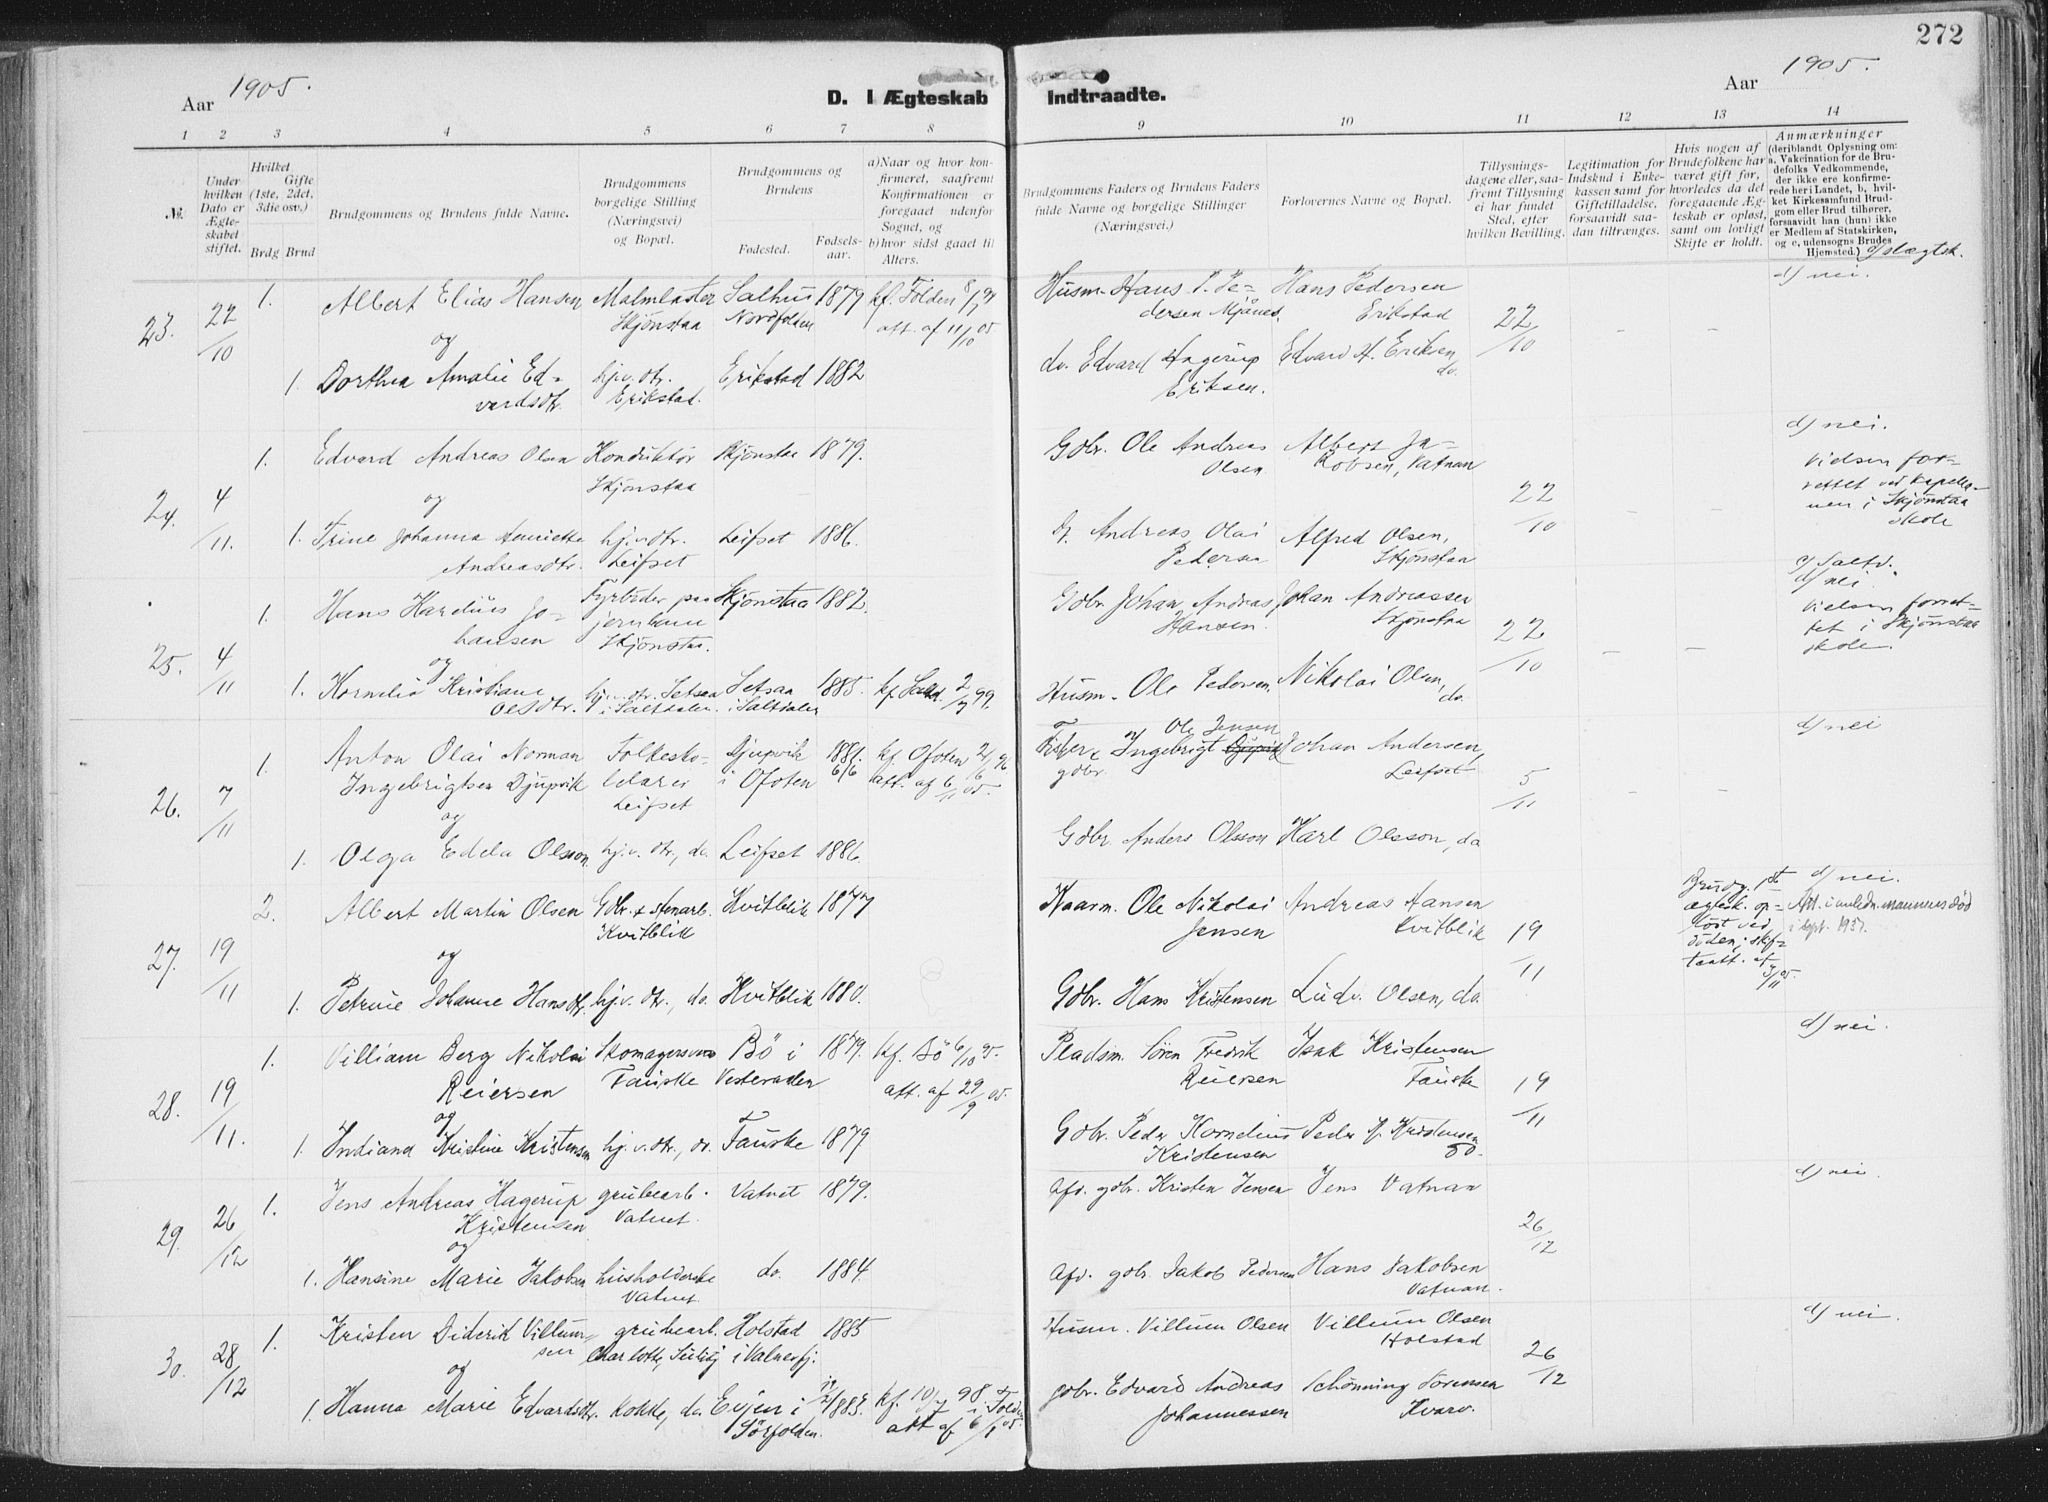 272
Aar 1905.
D. I Ægteskab Indtraadte.
Aar 1905.
1 2 3 4 5 6 7 8 9 10 11 12 13 14
No.
Under hvilken Dato er Ægteskabet stiftet.
Hvilket Gifte (1ste, 2det, 3die osv.)
Brdg Brud
Brudgommens og Brudens fulde Navne.
Brudgommens borgelige Stilling (Næringsvei) og Bopæl.
Brudgommens og Brudens
Fødested.
Fødselsaar.
a) Naar og hvor konfirmeret, saafremt Konfirmationen er foregaaet udenfor Sognet, og
b) hvor sidst gaaet til Alters.
Brudgommens Faders og Brudens Faders fulde Navne og borgelige Stillinger (Næringsvei.)
Forlovernes Navne og Bopæl.
Tillysningsdagene eller, saafremt Tillysning ei har fundet Sted, efter hvilken Bevilling.
Legitimation for Indskud i Enkekassen samt for Giftetilladelse, forsaavidt saadan tiltrænges.
Hvis nogen af Brudefolkene har været gift før, hvorledes da det foregaaende Ægteskab er opløst, samt om lovligt Skifte er holdt.
Anmærkninger (deriblandt Oplysning om: a. Vakcination for de Brudefolks Vedkommende, der ikke ere konfirmerede her i Landet, b, hvilket Kirkesamfund Brudgom eller Brud tilhører, forsaavidt han (hun) ikke er Medlem af Statskirken, og c, udensogns Brudes Hjemsted.) d/ slægtsk.
23. 22/10 1. Albert Elias Hansen Malmlaster Skjönstaa Salhus Nordfolden 1879 kf. Folden 8/7 94 att. af 11/10 05 Husm. Hans P. Pedersen Mjønes. Hans Pedersen Erikstad 22/10 - - d/ nei.
og
1. Dorthea Amalie Edvardsdtr. hj.v. dtr. Erikstad. Erikstad 1882 do. Edvard Hagerup Eriksen. Edvard H. Eriksen, do.
24. 4/11. 1. Edvard Andreas Olsen Konduktør Skjönstaa Skjönstaa 1879. Gdbr. Ole Andreas Olsen Albert Jakobsen, Vatnan 22/10 - - d/ nei. Vielsen forrettet ved Kapellanen i Skjönstaa skole
og
1. Trine Johanna Henriette Andreasdtr. hj.v. dtr. Leifset Leifset 1886. Andreas Olai Pedersen Alfred Olsen, Skjönstaa
25. 4/11 1. Hans Hardius Johansen Fyrbøder paa jernbane Skjönstaa. Skjönstaa 1882. Gdbr. Johan Andreas Hansen. Johan Andreassen Skjönstaa 22/10 - - c/ Saltd. d/ nei. Vielsen forrettet i Skjönstaa skole.
og
1. Kornelia Kristiane Olsdtr. hj.v. dtr. Setsaa i Saltdalen. Setsaa i Saltdalen 1885. kf. Saltd. 2/7 99. Husm. Ole Pedersen. Nikolai Olsen, do.
26. 7/11 1. Anton Olai Norman Ingebrigtsen Djupvik Folkeskolelærer Leifset Djupvik i Ofoten 1881. 6/6 kf. Ofoten 21/6 96 att. af 6/11 05. Fisker & gdbr. Ingebrigt Ole Jensen Djupvik Johan Andersen, Leifset 5/11 - - d/ nei
og
1. Olga Edela Olsson. hj.v. dtr., do. Leifset 1886. Gdbr. Anders Olsson Karl Olsson, do
27. 19/11 2. Albert Martin Olsen Gdbr. & stenarb. Kvitblik Kvitblik 1877 Kaarm. Ole Nikolai Jensen Andreas Hansen Kvitblik 19/11 Brudg. 1ste ægtesk. opløst ved døden; skifteatt. af 9/11 05. d/ nei. Att. i anledn. mannens død i sept. 1937.
og
1. Petrine Johanne Hansdtr. hj.v. dtr., do. Kvitblik 1880. Gdbr. Hans Kristensen Ludv. Olsen, do.
28. 19/11. 1. Villiam Berg Nikolai Reiersen Skomagersvend Fauske Bö i Vesteraalen 1879. kf. Bö 6/10 95. att. af 29/9 05. Pladsm. Sören Fredrik Reiersen Isak Kristensen Fauske 19/11 d/ nei.
og
1. Indiana Kristine Kristensen hj.v. dtr., do. Fauske 1879 Gdbr. Peder Kornelius Kristensen Peder K. Kristensen do.
29. 26/12 1. Jens Andreas Hagerup Kristensen grubearb. Vatnet. Vatnet 1879. Afd. gdbr. Kristen Jensen Jens Vatnan 26/12 d/ nei.
og
1. Hansine Marie Jakobsen husholderske Vatnet. do. 1884. Afd. gdbr. Jakob Pedersen Hans Jakobsen Vatnan.
30. 28/12 1. Kristen Diderik Villumsen grubearb. Charlotta, Sulitj. Holstad i Valnesfj. 1885 Husm. Villum Olsen Villum Olsen Holstad 26/12 d/ nei.
og
1. Hanna Marie Edvardsdtr. kokke, do. Evjen i Sörfolden. 1883. kf. 10/7 98 i Folden att af 6/1 05. gdbr. Edvard Andreas Johannessen Schönning Sörensen Kvarv.